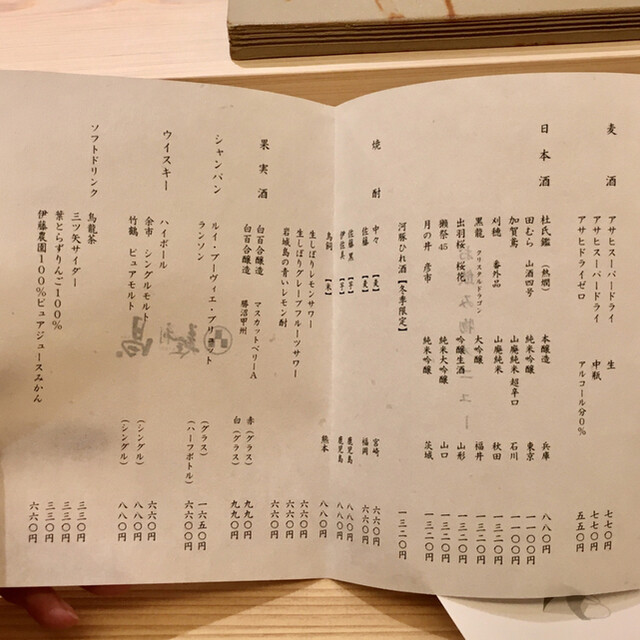 麦酒
アサヒスーパードライ 生 七七〇円
アサヒスーパードライ 中瓶 七七〇円
アサヒドライゼロ アルコール分0% 五五〇円
日本酒
杜氏鑑 (熱燗) 本醸造 兵庫 八八〇円
田むら 山酒四号 純米吟醸 東京 一一〇〇円
加賀鳶 山廃純米超辛口 石川 一一〇〇円
刈穂 番外品 山廃純米 秋田 一三二〇円
黒龍 クリスタルドラゴン 大吟醸 福井 一三二〇円
出羽桜 桜花 吟醸生酒 山形 一三二〇円
獺祭45 純米大吟醸 山口 一三二〇円
月の井 彦市 純米吟醸 茨城 一三二〇円
河豚ひれ酒【冬季限定】 一三二〇円
焼酎
中々 【麦】 宮崎 六六〇円
佐藤 【麦】 福岡 六六〇円
佐藤 黒 【芋】 鹿児島 八八〇円
伊佐美 【芋】 鹿児島 八八〇円
鳥飼 【米】 熊本 八八〇円
生しぼりレモンサワー 六六〇円
生しぼりグレープフルーツサワー 六六〇円
岩城島の青いレモン酎 六六〇円
果実酒
白百合醸造 マスカットベリーA 赤(グラス) 九九〇円
白百合醸造 勝沼甲州 白(グラス) 九九〇円
シャンパン
ルイ・ブーティエ・ブリュット (グラス) 一六五〇円
ランソン (ハーフボトル) 六六〇〇円
ウイスキー
ハイボール 六六〇円
余市 シングルモルト (シングル) 八八〇円
竹鶴 ピュアモルト (シングル) 八八〇円
ソフトドリンク
烏龍茶 三三〇円
三ツ矢サイダー 三三〇円
葉とらずりんご100% 三三〇円
伊藤農園100%ピュアジュースみかん 六六〇円